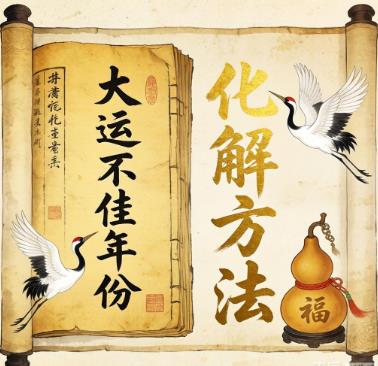 化解方法
大运不佳年份
福